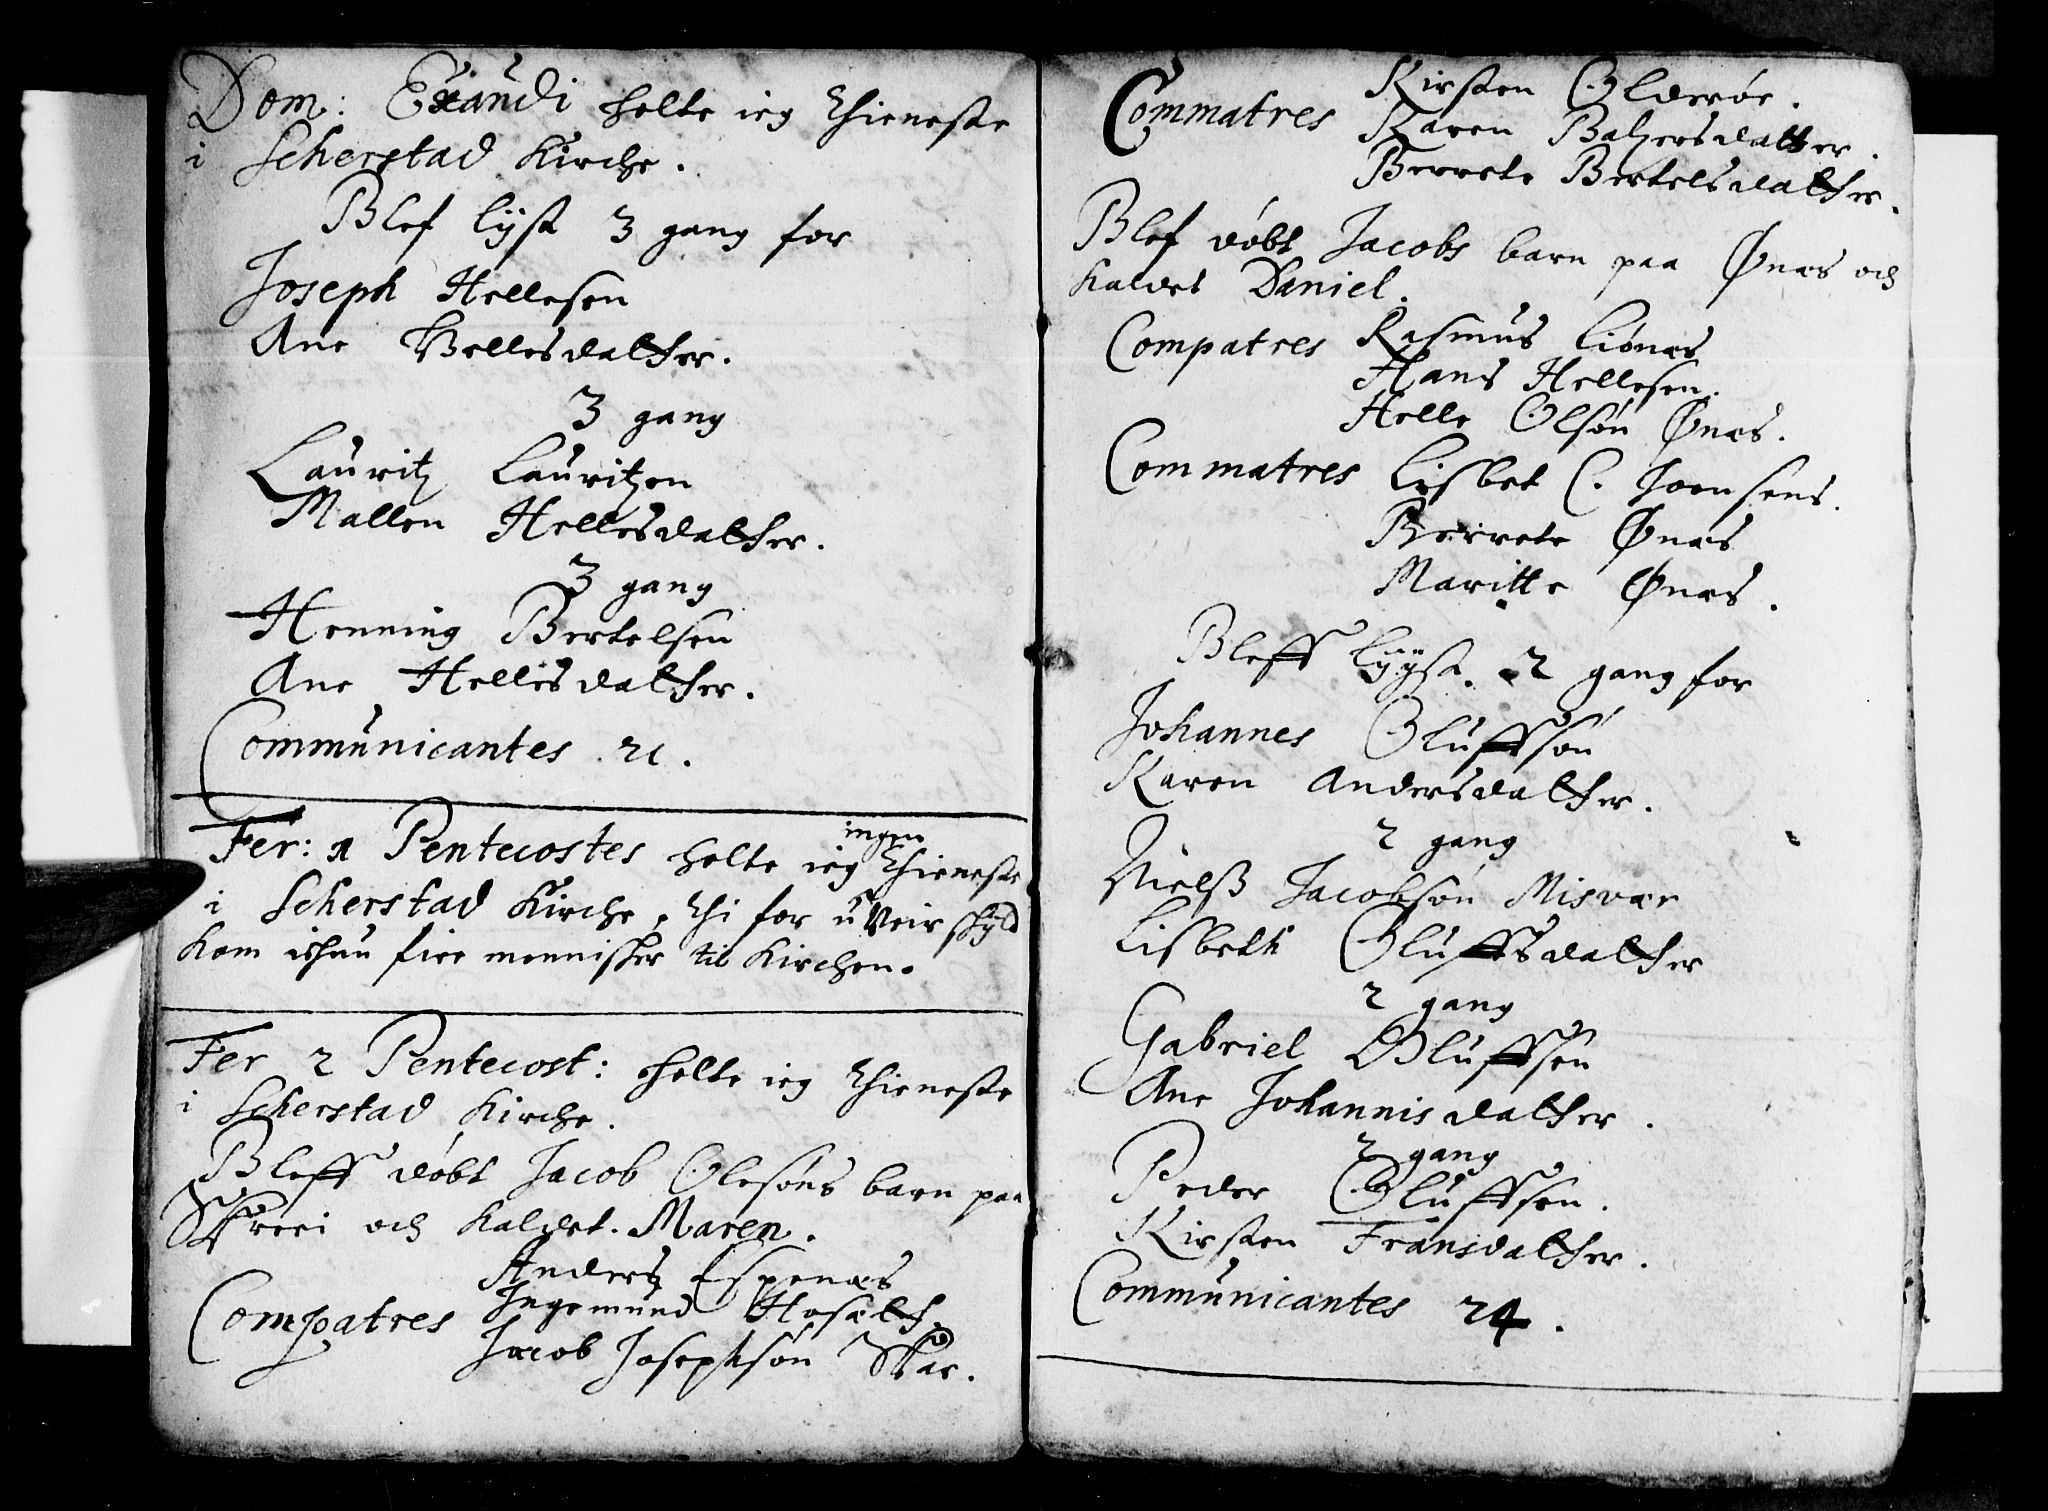 Dom: Exaudi holte ieg thieneste
i Scherstad Kirche.
Blef lyst 3 gang for
Joseph Hellesen
Ane Vellesdatter.
3 gang
Lauritz Lauritzen
Mallen Hellesdatter.
3 gang
Henning Bertelsen
Ane Hellisdatter.
Communicantes 21.
Fer: 1 Pentecostes holte ieg ingen thieneste
i Scherstad Kirche, thi for uVeir skyld
Kom ichun fire mennisker til Kirchen.
Fer 2 Pentecost: holte ieg thieneste
i Scherstad Kirche.
Bleff døbt Jacob Olesøns barn paa
och Kaldet. Maren.
Anders Espenæs
Compatres Ingemund
Jacob Josephsøn Skar.
Commatres Kirsten Olderøe.
Karen Baltzersdatter.
Berrete Bertelsdatter.
Blef døbt Jacobs barn paa Ønæs och
Kaldet Daniel.
Compatres Rasmus Liønæs
Hans Hellesen.
Helle Olsøn Ønæs.
Commatres Lisbet C. Joensens.
Berrete Ønæs
Maritte Ønæs.
Bleff lyyst. 2 gang for
Johannes Oluffsøn
Karen Andersdatter.
2 gang
Nielß Jacobsøn Misvær
Lisbeth Oluffsdatter
2 gang
Gabriel Oluffsøn
Ane Johannisdatter.
2 gang
Peder Oluffsen.
Kirsten Fransdatter.
Communicantes 24.